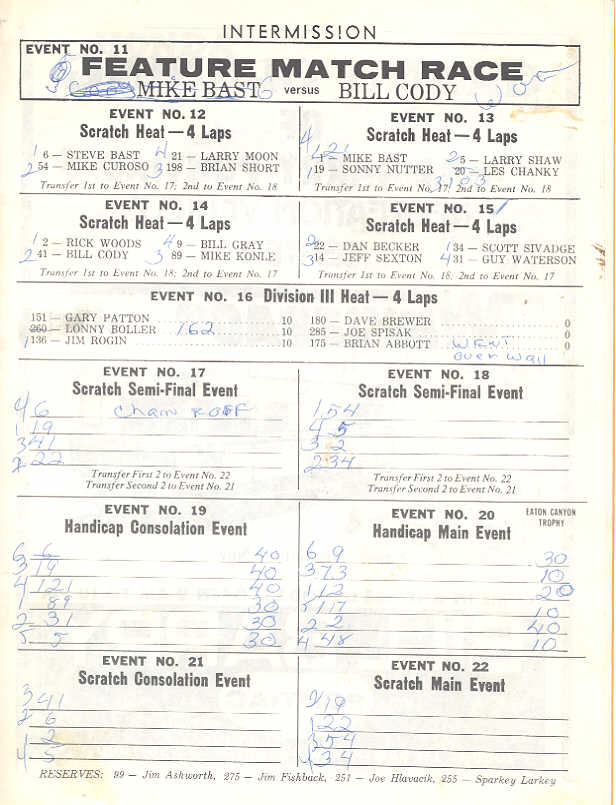 INTERMISSION
EVENT NO. 11
FEATURE MATCH RACE
MIKE BAST versus BILL CODY
EVENT NO. 12
Scratch Heat — 4 Laps
1 6 — STEVE BAST 4 21 — LARRY MOON
2 54 — MIKE CUROSO 3 198 — BRIAN SHORT
Transfer 1st to Event No. 17; 2nd to Event No. 18
EVENT NO. 13
Scratch Heat — 4 Laps
4 121
1 — MIKE BAST 2 5 — LARRY SHAW
1 19 — SONNY NUTTER 20 — LES CHANKY
3 183
Transfer 1st to Event No. 17; 2nd to Event No. 18
EVENT NO. 14
Scratch Heat — 4 Laps
1 2 — RICK WOODS 4 9 — BILL GRAY
2 41 — BILL CODY 3 89 — MIKE KONLE
Transfer 1st to Event No. 18; 2nd to Event No. 17
EVENT NO. 15
Scratch Heat — 4 Laps
2 22 — DAN BECKER 1 34 — SCOTT SIVADGE
3 14 — JEFF SEXTON 4 31 — GUY WATERSON
Transfer 1st to Event No. 18; 2nd to Event No. 17
EVENT NO. 16 Division III Heat — 4 Laps
151 — GARY PATTON 10 180 — DAVE BREWER 0
260 — LONNY BOLLER 162 10 285 — JOE SPISAK 0
1 136 — JIM ROGIN 10 175 — BRIAN ABBOTT WENT 0
over wall
EVENT NO. 17
Scratch Semi-Final Event
4 6
1 19
3 41
2 22
Transfer First 2 to Event No. 22
Transfer Second 2 to Event No. 21
EVENT NO. 18
Scratch Semi-Final Event
1 54
4 5
3 2
2 34
Transfer First 2 to Event No. 22
Transfer Second 2 to Event No. 21
EVENT NO. 19
Handicap Consolation Event
6 6 40
3 19 40
4 121 40
1 89 30
2 31 30
5 5 30
EVENT NO. 20 EATON CANYON TROPHY
Handicap Main Event
6 9 30
3 73 10
1 12 20
5 117 10
2 2 40
4 48 10
EVENT NO. 21
Scratch Consolation Event
3 41
2 6
1 2
4 5
EVENT NO. 22
Scratch Main Event
2 19
1 22
3 54
4 34
RESERVES: 99 — Jim Ashworth, 275 — Jim Fishback, 251 — Joe Hlavacik, 255 — Sparkey Larkey